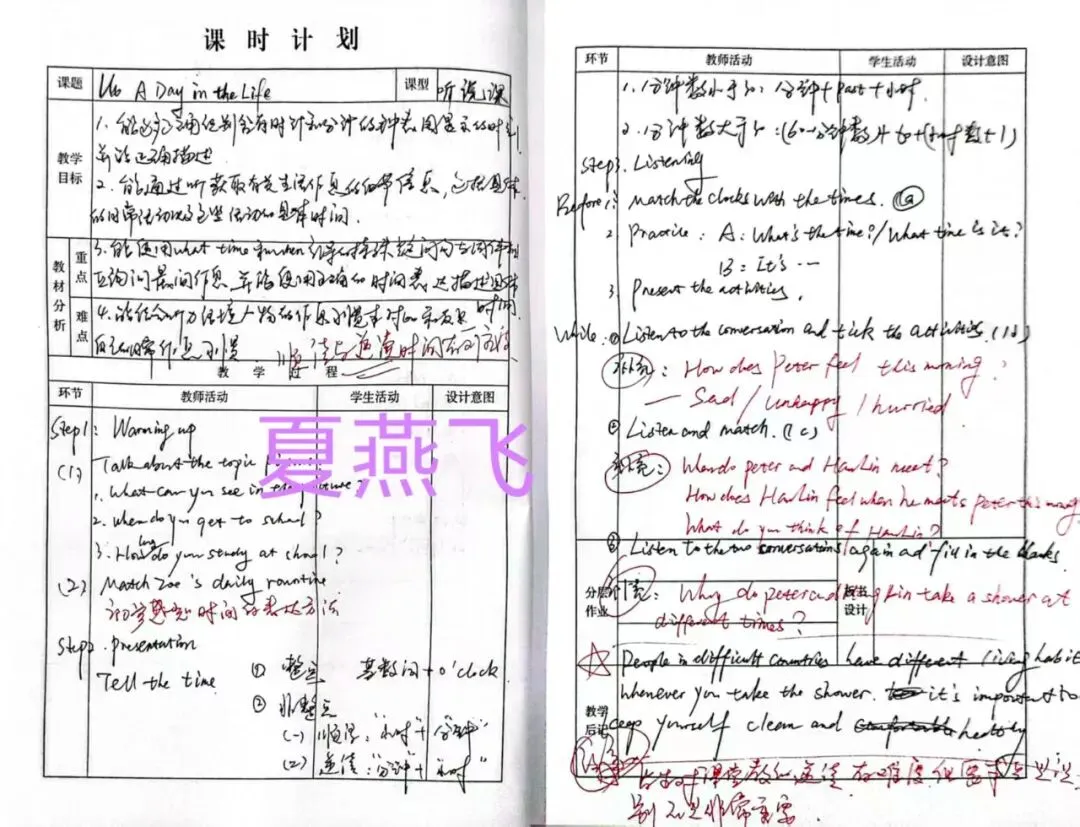 课时计划
课题 U6 A Day in the Life 课型 听说课
教学目标
1. 能通过正确识别含有时针和分针的钟表图显示的时刻
并能正确描述
2. 能通过听获取有关生活作息的日常信息，包括具体
的日常活动以及这些活动的具体时间.
教材分析
重点
3. 能使用what time和when引导的特殊疑问句与同伴相
互询问日常作息，并能使用正确的时间表达描述具体时间.
难点
4. 能结合听力语境人物的作息习惯
自己的日常作息习惯. 顺读与逆读时间表
教学过程
环节 教师活动 学生活动 设计意图
Step 1: Warming up
(1) Talk about the topic
1. What can you see in the picture?
2. When do you get to school?
3. How long do you study at school?
(2) Match Zoe's daily rountine
初步感知时间的表达方法
Step2. presentation
Tell the time
① 整点 基数词 + o'clock
② 非整点
(一) 顺读: "小时" + "分钟"
(二) 逆读: "分钟" + "小时"
夏燕飞
环节 教师活动 学生活动 设计意图
1. 分钟数小于30: 分钟 + past + 小时.
2. 分钟数大于30: (60-分钟数) + to + (小时数+1)
Step3. Listening
Before: 1. Match the clocks with the times. (1a)
2. Practice: A: What's the time?/What time is it?
B: It's ...
3. Present the activities.
While: ① Listen to the conversation and tick the activities. (1b)
补充: How does Peter feel this morning?
— Sad / unhappy / hurried
② Listen and match. (1c)
补充: When do peter and Han Lin meet?
How does Han Lin feel when he meets peter this morning
What do you think of Han Lin?
③ Listen to the two conversations again ad fill in the blanks
分层作业 板书设计
补充: Why do peter and Han Lin take a shower at
different times?
☆ People in difficult countries have different living habit
whenever you take the shower. it's important to
keep yourself clean and healthy
教学后记
逆读 有难度 但
别 非常重要